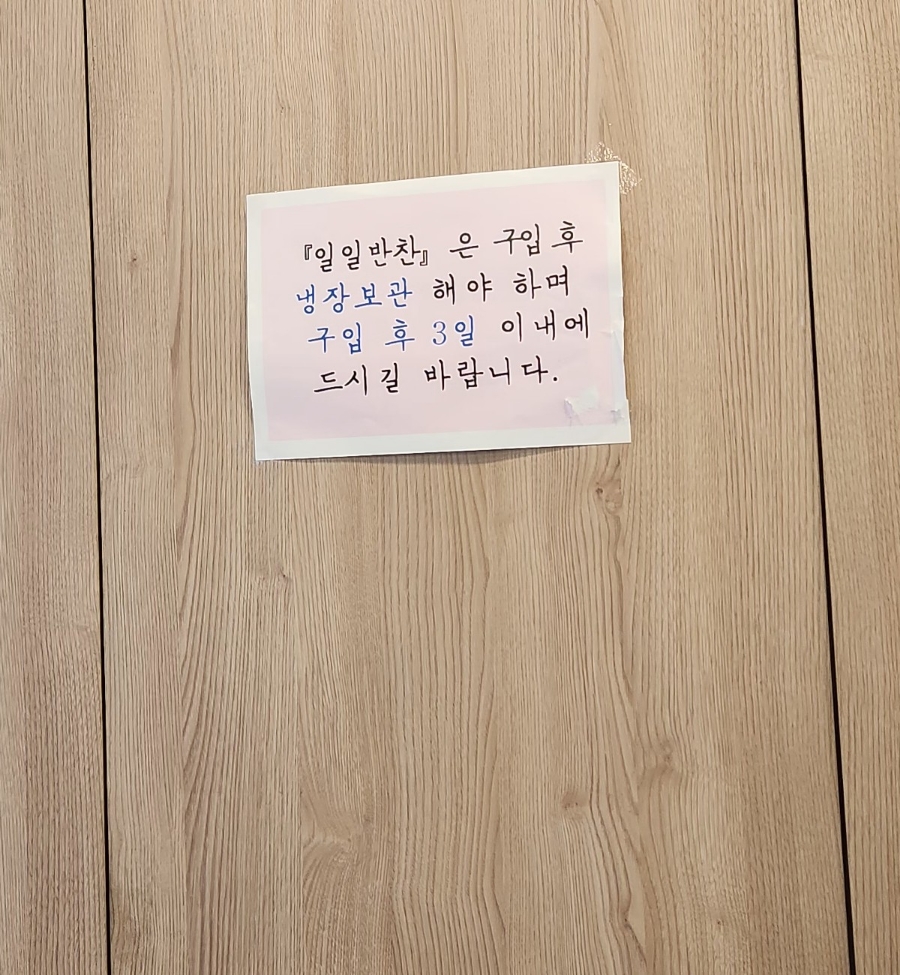 『일일반찬』 은 구입 후
냉장보관 해야 하며
구입 후 3일 이내에
드시길 바랍니다.